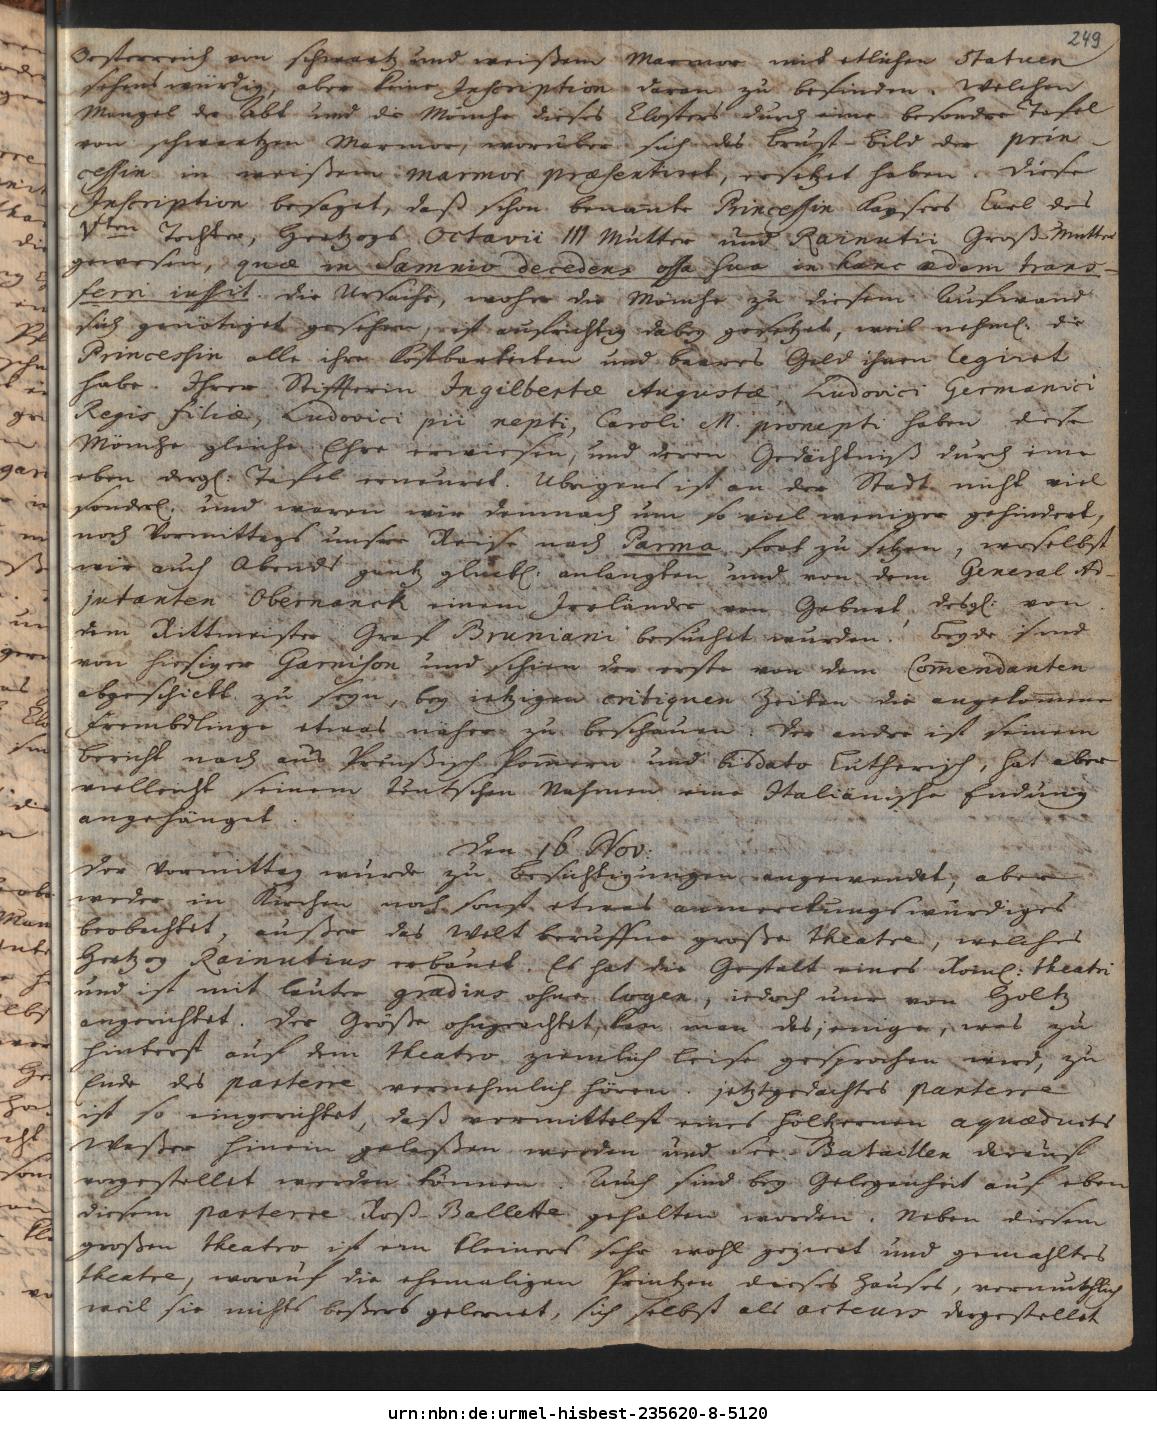 249
Oesterreich von schwartz und weißem Marmor mit etlichen Statuen
sehenswürdig, aber keine Inscription daran zu befinden. Welchen
Mangel der Abt und die Mönche dieses Closters durch eine besondere Tafel
von schwartzen Marmor, worüber sich das Brust-Bild der Prin-
cessin in weißem marmor præsentiret, ersetzet haben. Diese
Inscription besaget, daß schon benante Princessin Kaysers Carl des
Vten Tochter, Hertzogs Octavii III Mutter und Rainutii Groß-Mutter
gewesen, quæ in Samnio decedens ossa sua in hanc ædem trans-
ferri iussit. die Ursache, woher die Mönche zu diesem Aufwand
sich genötiget gesehen, ist aufrichtig dabey gesetzet, weil nehml: die
Princessin alle ihre Kostbarkeiten und baares Geld ihnen legiret
habe. Ihrer Stiffterin Ingilbertæ Augustæ, Ludovici Germanici
Regis filiæ, Ludovici pii nepti, Caroli M. pronepti haben diese
Mönche gleiche Ehre erwiesen, und deren Gedächtniß durch eine
eben dergl: Tafel erneuret. Ubrigens ist an der Stadt nicht viel
sonderl: und waren wir demnach um so viel weniger gehindert,
noch Vormittags unsre Reise nach Parma fort zu setzen, woselbst
wir auch Abends gantz glückl: anlangten und von dem General Ad-
jutanten Obernanck einem Irrländer von Geburt desgl: von
dem Rittmeister Graf Bruniani besuchet wurden. Beyde sind
von hiesiger Garnison und schien der erste von dem Com̄endanten
abgeschickt zu seyn, bey ietzigen critiquen Zeiten die angekom̄ene
Frembdlinge etwas näher zu beschauen. Der andre ist seinem
Bericht nach aus Preußisch Pom̄ern und bisdato Lutherisch, hat aber
vielleicht seinem Teutschen Nahmen eine Italiänische Endung
angehänget.
Den 16 Nov:
Der Vormittag wurde zu Besichtigungen angewendet, aber
weder in Kirchen noch sonst etwas anmerckungswürdiges
beobachtet, außer das Welt beruffne große theatre, welches
Hertzog Rainutius erbauet. Es hat die Gestalt eines Röml: theatri
und ist mit lauter gradins ohne logen, iedoch nur von Holtz
angerichtet. Der Größe ohngeachtet, kan man dasjenige, was zu
hinterst auf dem theatro ziemlich leise gesprochen wird, zu
Ende des parterre vernehmlich hören. jetztgedachtes parterre
ist so eingerichtet, daß vermittelst eines höltzernen aquæducts
Waßer hinein gelaßen werden und See-Bataillen darauf
vorgestellet werden können. Auch sind bey Gelegenheit auf eben
diesem parterre Roß-Ballette gehalten worden. Neben diesem
großen theatro ist ein kleiners sehr wohl gezieret und gemahltes
theatre, worauf die ehemaligen Printzen dieses Hauses, vermuthlich
weil sie nichts beßers gelernet, sich selbst als acteurs dargestellet
urn:nbn:de:urmel-hisbest-235620-8-5120